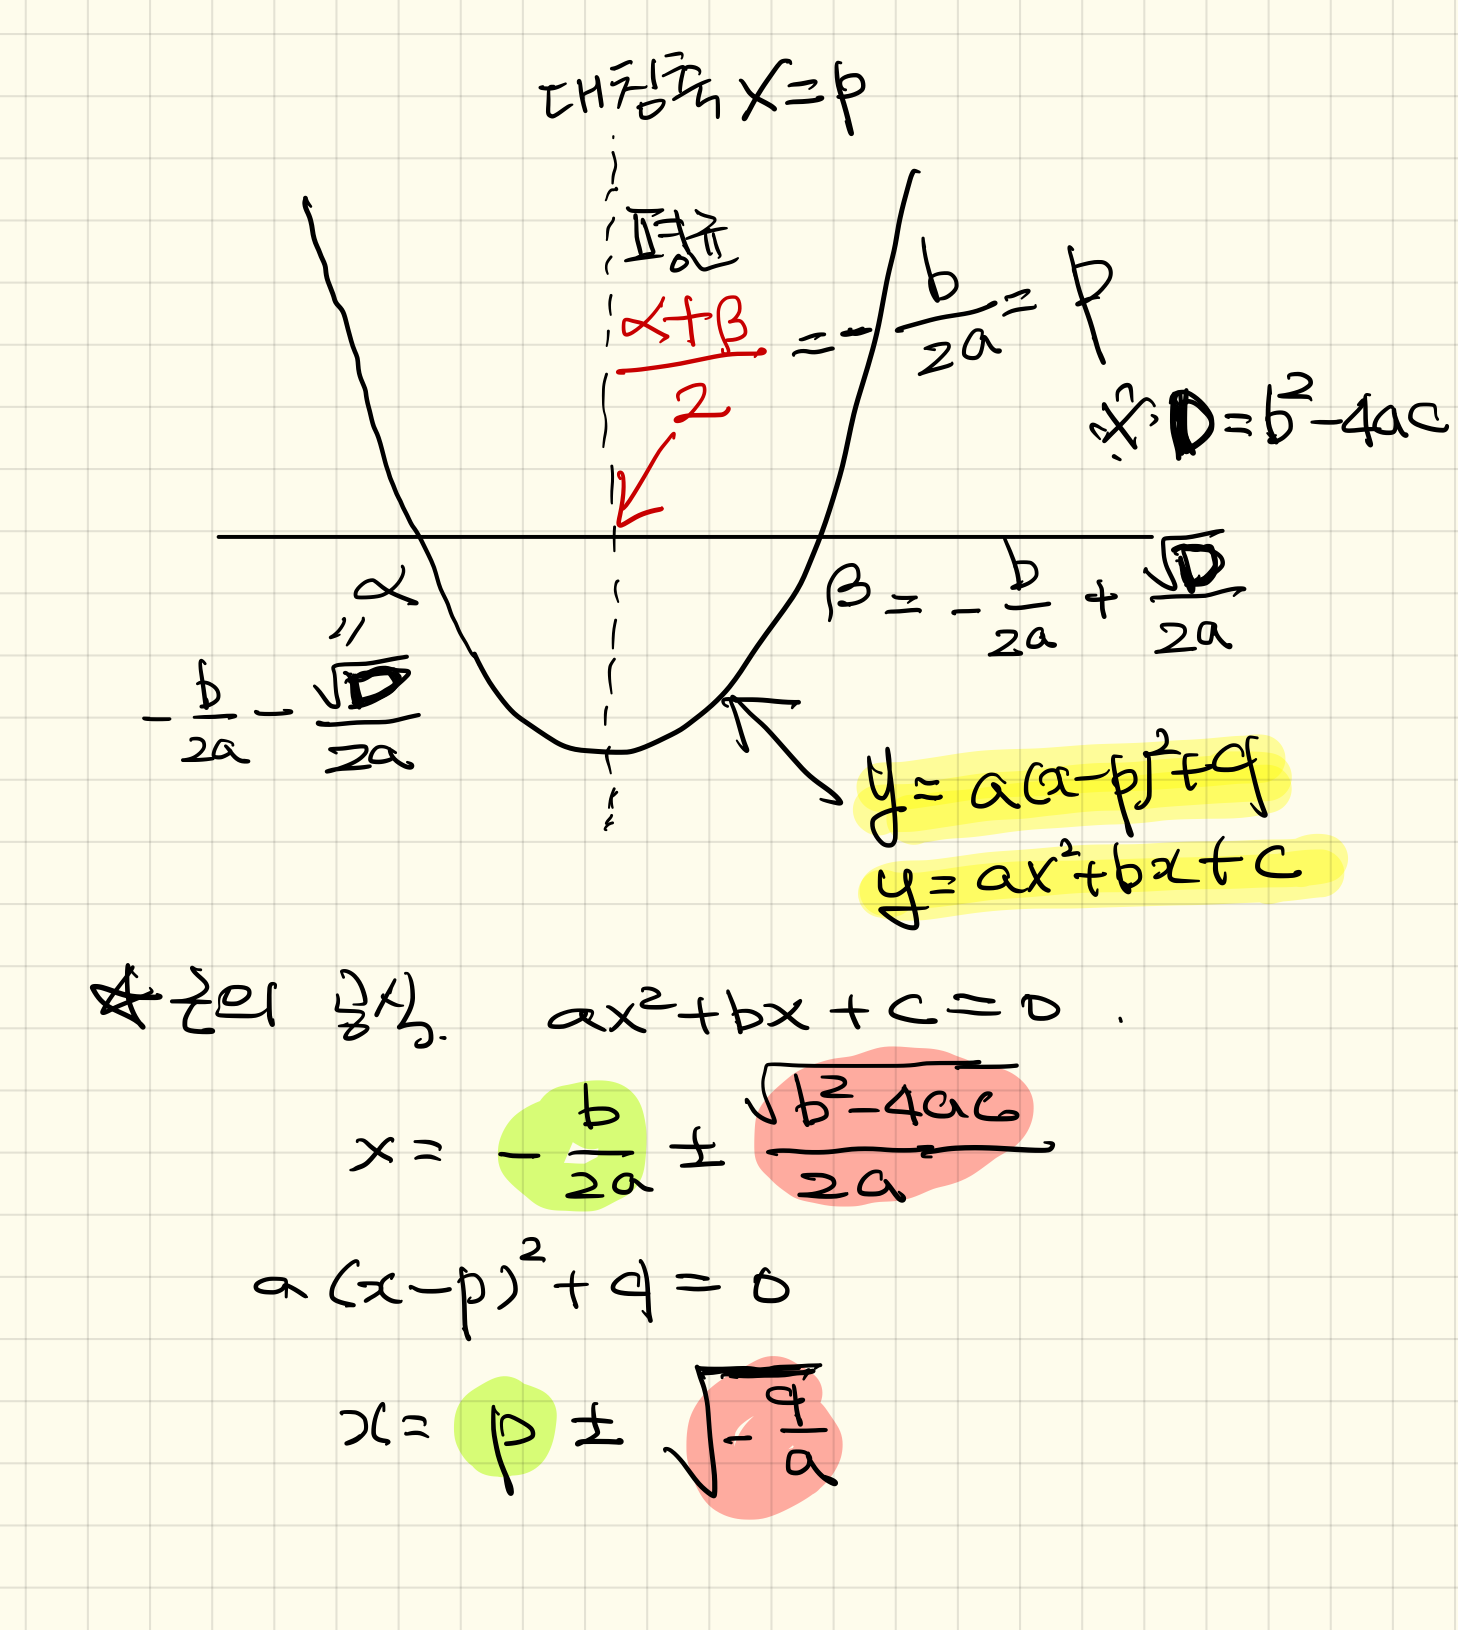 대칭축 x=p
평균
α+β/2 = -b/2a = p
※ D=b²-4ac
α
=
-b/2a - √D/2a
β = -b/2a + √D/2a
y=a(x-p)²+q
y=ax²+bx+c
☆근의 공식. ax²+bx+c=0.
x= -b/2a ± √b²-4ac/2a
a(x-p)²+q=0
x= p ± √-q/a